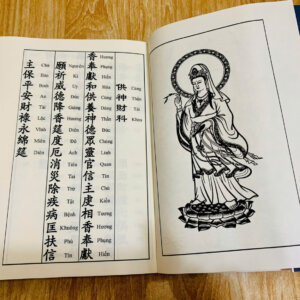 供神財科
Cúng Thần Tài Khoa
香奉獻和供養神德眾靈官信主虔相香奉獻
Hương Phụng Hiến Hòa Cúng Thần Đức Chúng Linh Quan Tín Chủ Kiền Tướng Hương Phụng Hiến
願祈威德降香筵度厄消災除疾病匡扶信
Nguyện Kì Uy Đức Giáng Hương Diên Độ Ách Tiêu Tai Trừ Tật Bệnh Khuông Phù Tín
主保平安財祿永綿筵
Chủ Bảo Bình An Tài Lộc Vĩnh Miên Diên